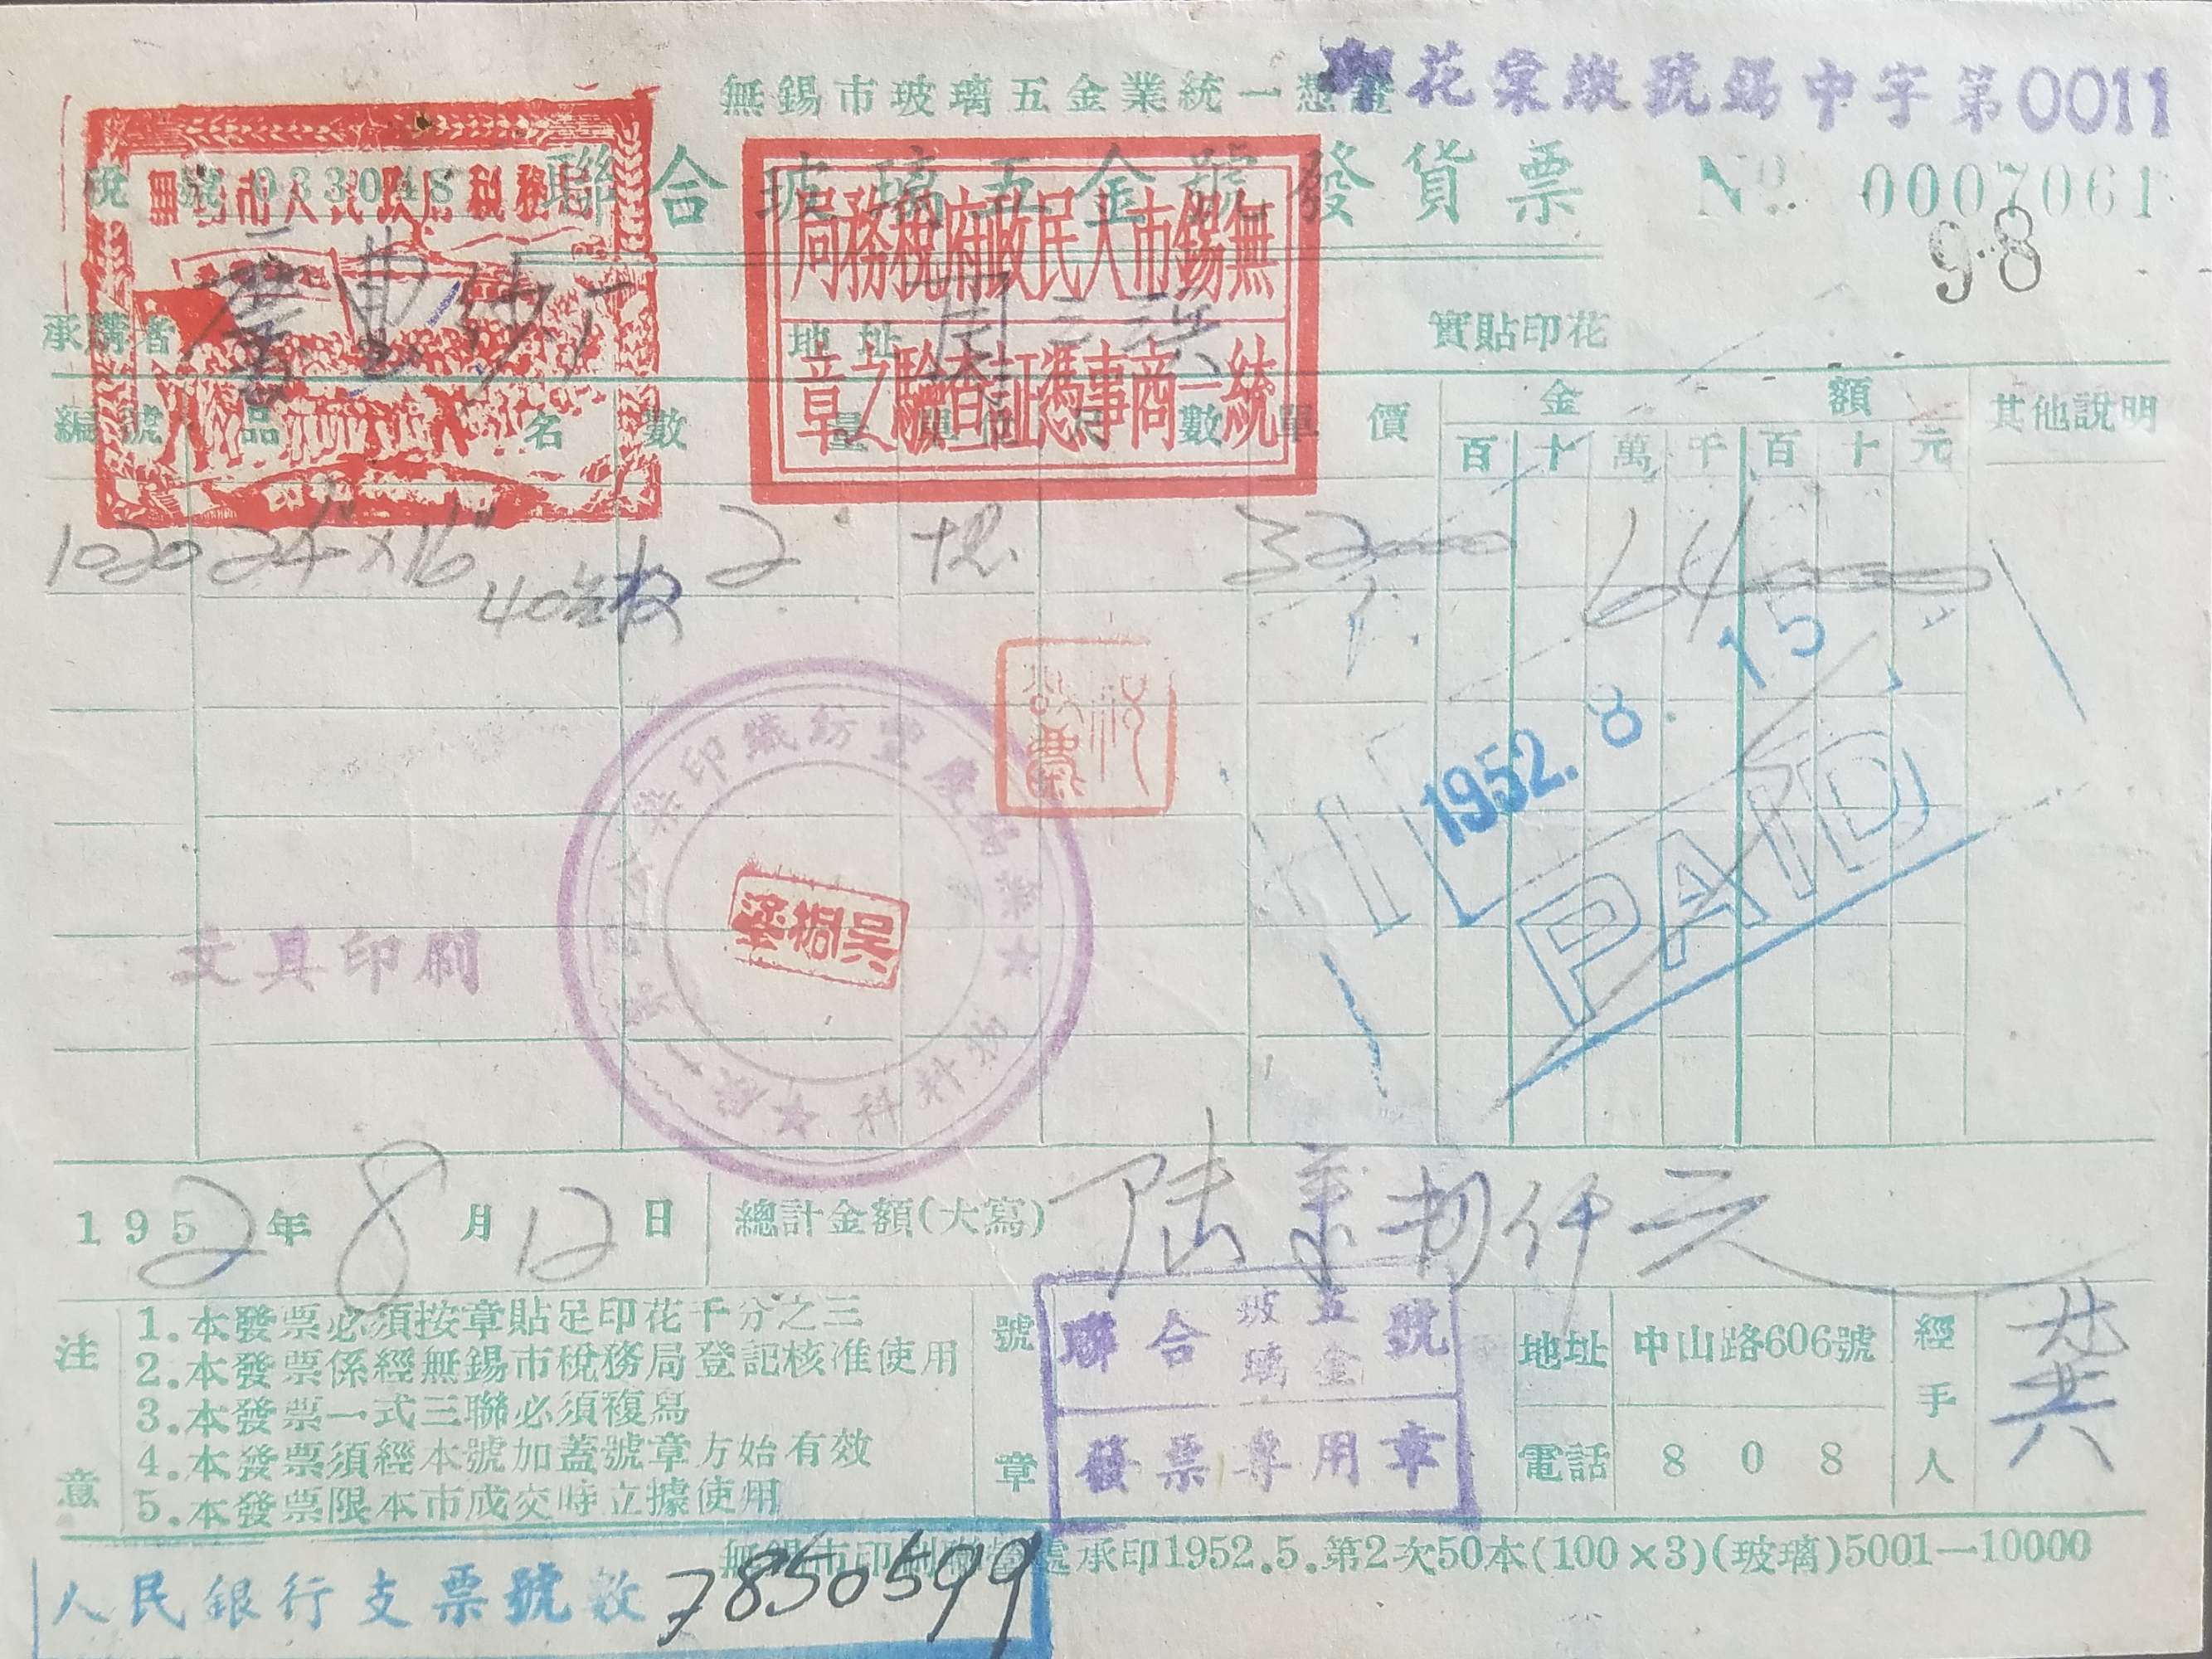 無錫市玻璃五金業統一憑證
印花棠繳號錫中字第0011
稅號033048
聯合玻璃五金號發貨票
No. 0007061
98
無錫市人民政府稅務局
無錫市人民政府稅務局
統一商事憑証查驗之章
承購者 慶豊紗厂
地址 周三浜
實貼印花
編號 品名 數量 單位 尺數 單價 金額 其他說明
百 十 萬 千 百 十 元
1020 24"×16" 2 塊 32000 64000
40
1952.8.15
PAID
吳桐
文具印刷
物料科
1952年8月12日 總計金額(大寫) 陸萬肆仟元
注意
1.本發票必須按章貼足印花千分之三
2.本發票係經無錫市稅務局登記核准使用
3.本發票一式三聯必須複寫
4.本發票須經本號加蓋號章方始有效
5.本發票限本市成交時立據使用
號章
聯合玻璃五金號
發票專用章
地址 中山路606號
電話 808
經手人
無錫市印刷聯營處承印1952.5.第2次50本(100×3)(玻璃)5001—10000
人民銀行支票號數 7850599